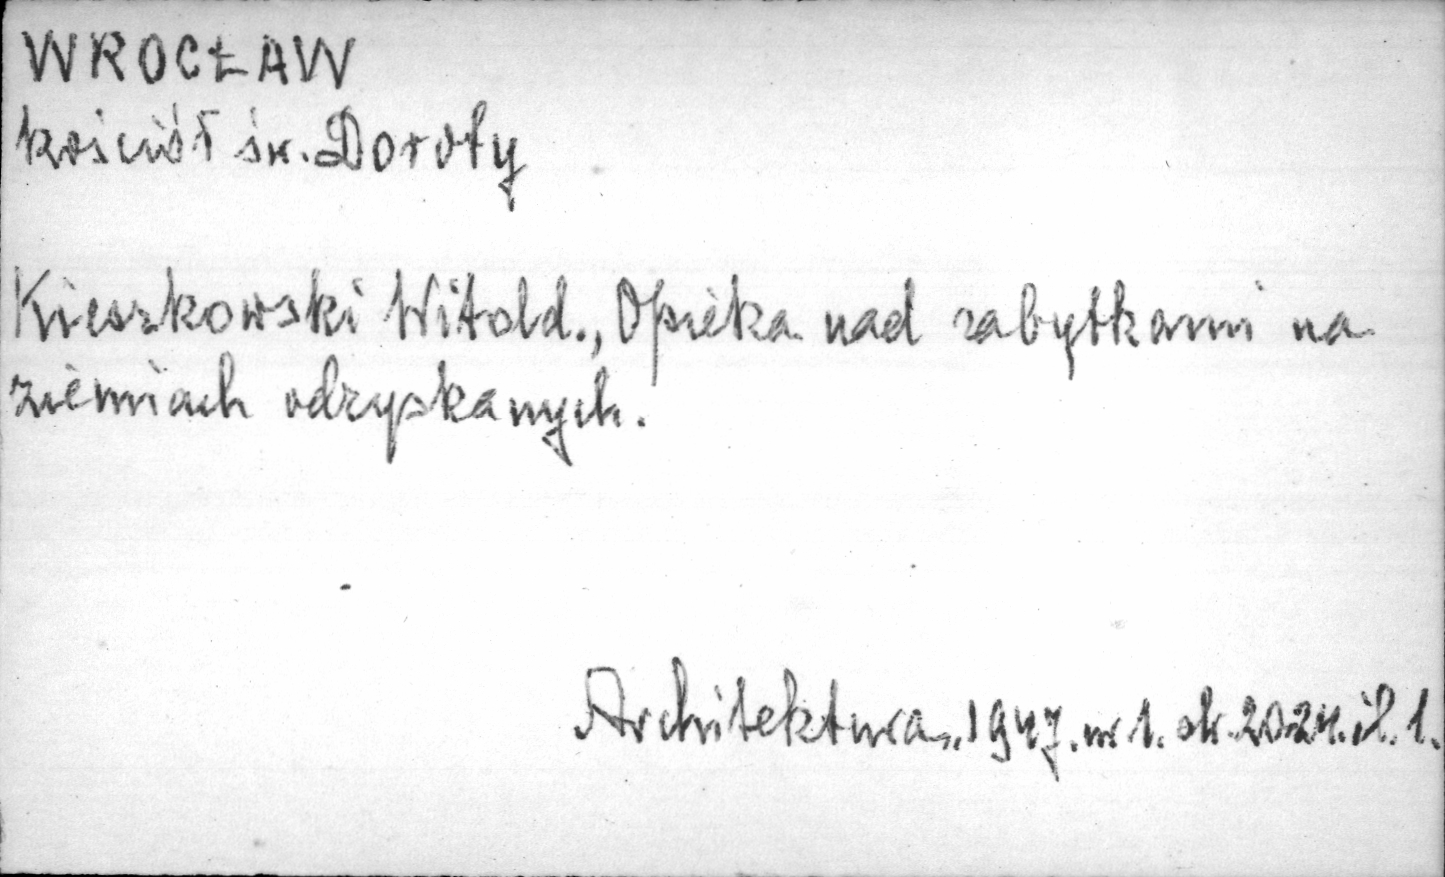 WROCŁAW
kościół św. Doroty
Kieszkowski Witold., Opieka nad zabytkami na
ziemiach odzyskanych.
Architektura. 1947. nr 1. str. 20-24. il. 1.